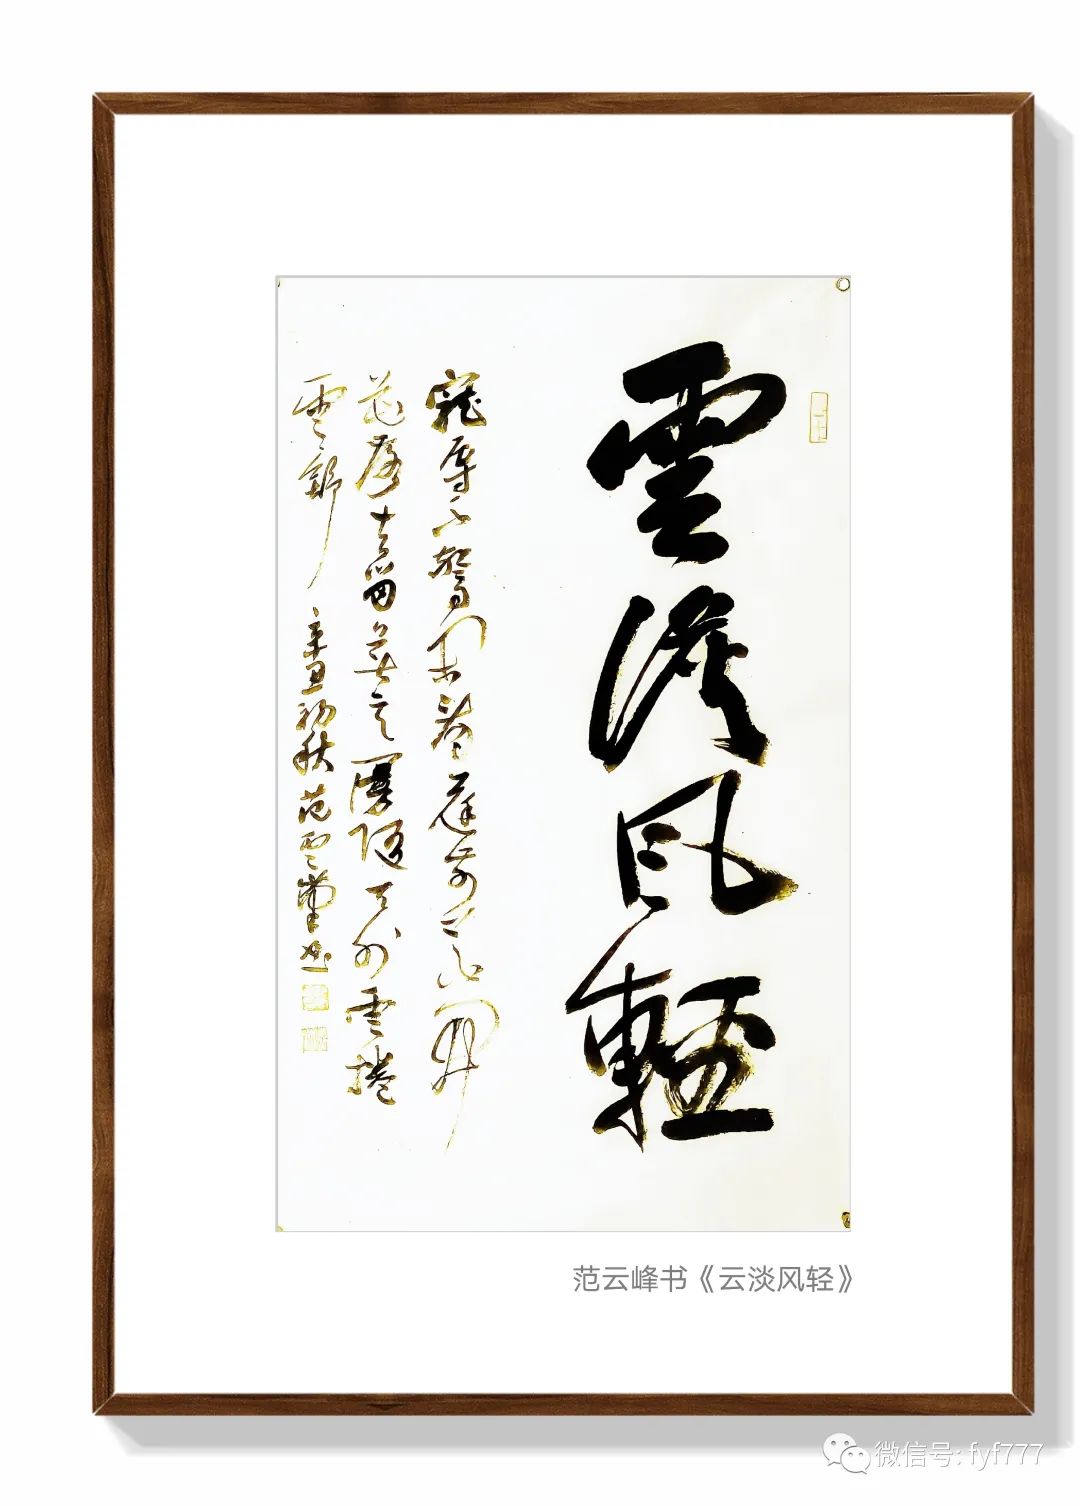 雲澹風輕
寵辱不驚閑看庭前花開
花落去留無意漫隨天外雲捲
雲舒 辛丑初秋范雲峰書
范云峰书《云淡风轻》
微信号: fyf777